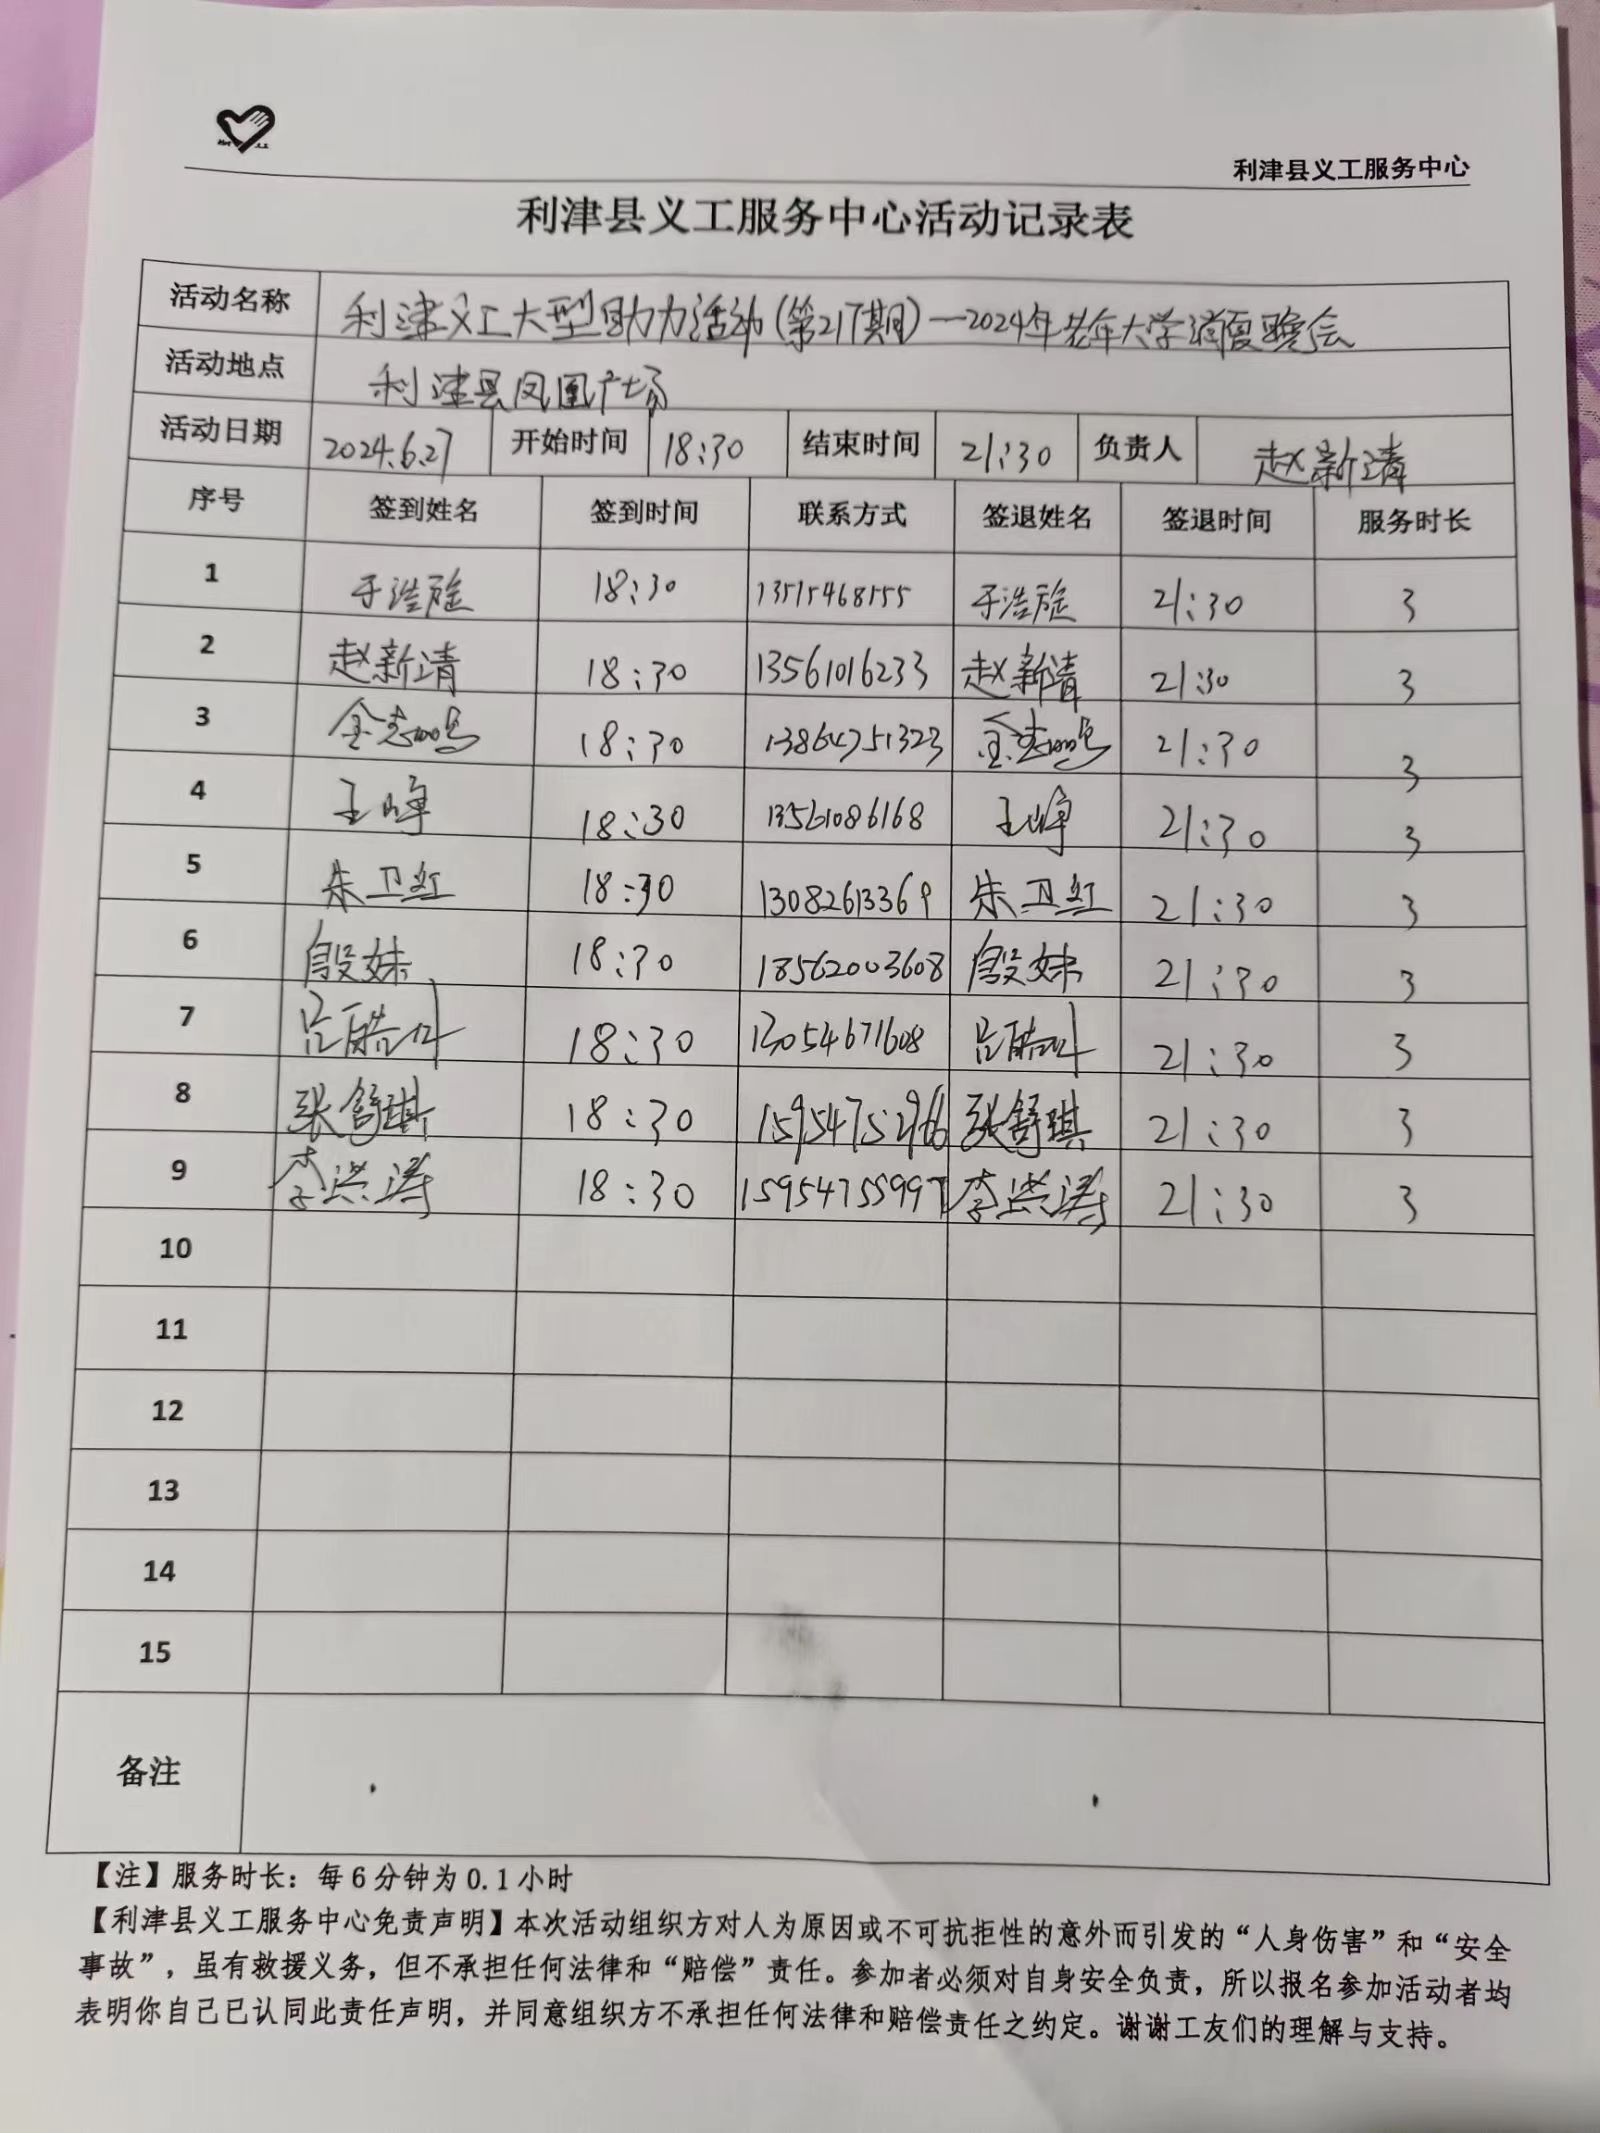 利津县义工服务中心
利津县义工服务中心活动记录表
活动名称 利津义工大型助力活动(第217期)—2024年老年大学消夏晚会
活动地点 利津县凤凰广场
活动日期 2024.6.27 开始时间 18:30 结束时间 21:30 负责人 赵新清
序号 签到姓名 签到时间 联系方式 签退姓名 签退时间 服务时长
1 于浩旋 18:30 13515468555 于浩旋 21:30 3
2 赵新清 18:30 13561016233 赵新清 21:30 3
3 18:30 13864751323 21:30 3
4 王峰 18:30 13561086168 王峰 21:30 3
5 朱卫红 18:30 13082613369 朱卫红 21:30 3
6 殷妹 18:30 18562003608 殷妹 21:30 3
7 18:30 13054671608 21:30 3
8 张舒琪 18:30 15954752966 张舒琪 21:30 3
9 李洪涛 18:30 15954755997 李洪涛 21:30 3
10
11
12
13
14
15
备注
【注】服务时长：每6分钟为0.1小时
【利津县义工服务中心免责声明】本次活动组织方对人为原因或不可抗拒性的意外而引发的“人身伤害”和“安全
事故”，虽有救援义务，但不承担任何法律和“赔偿”责任。参加者必须对自身安全负责，所以报名参加活动者均
表明你自己已认同此责任声明，并同意组织方不承担任何法律和赔偿责任之约定。谢谢工友们的理解与支持。